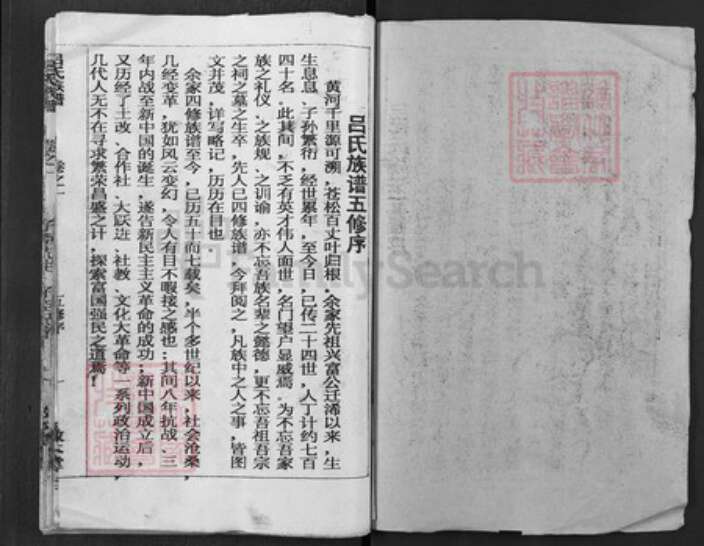 吕氏族谱五修序
黄河千里源可溯，苍松百丈叶归根，余家先祖兴富公迁浠以来，生
生息息、子孙繁衍，经世累年，至今日，已传二十四世，人丁计约七百
四十名．此其间，不乏有英才伟人面世，名门望户显威焉．为不忘吾家
族之礼仪、之族规、之训谕，亦不忘吾族名辈之懿德，更不忘吾祖吾宗
之祠之墓之生卒，先人已四修族谱，今拜阅之，凡族中之人之事，皆图
文并茂，详写略记，历历在目也．
余家四修族谱至今，已历五十而七载矣，半个多世纪以来，社会沧桑，
几经变革，犹如风云变幻，令人有目不暇接之感也：其间八年抗战、三
年内战至新中国的诞生，遂告新民主主义革命的成功；新中国成立后，
又历经了土改、合作社、大跃进、社教、文化大革命等一系列政治运动，
几代人无不在寻求繁荣昌盛之计，探索富国强民之道焉！
吕氏族谱
卷之一
五修序
FamilySearch